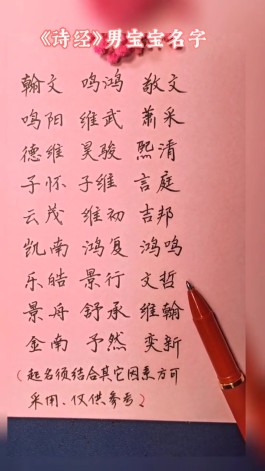 《诗经》男宝宝名字
翰文 鸣鸿 敬文
鸣阳 维武 萧采
德维 昊骏 熙清
子怀 子维 言庭
云茂 维初 吉邦
凯南 鸿复 鸿鸣
乐皓 景行 文哲
景舟 舒承 维翰
金南 予然 奕新
(起名须结合其它因素方可
采用、仅供参考)